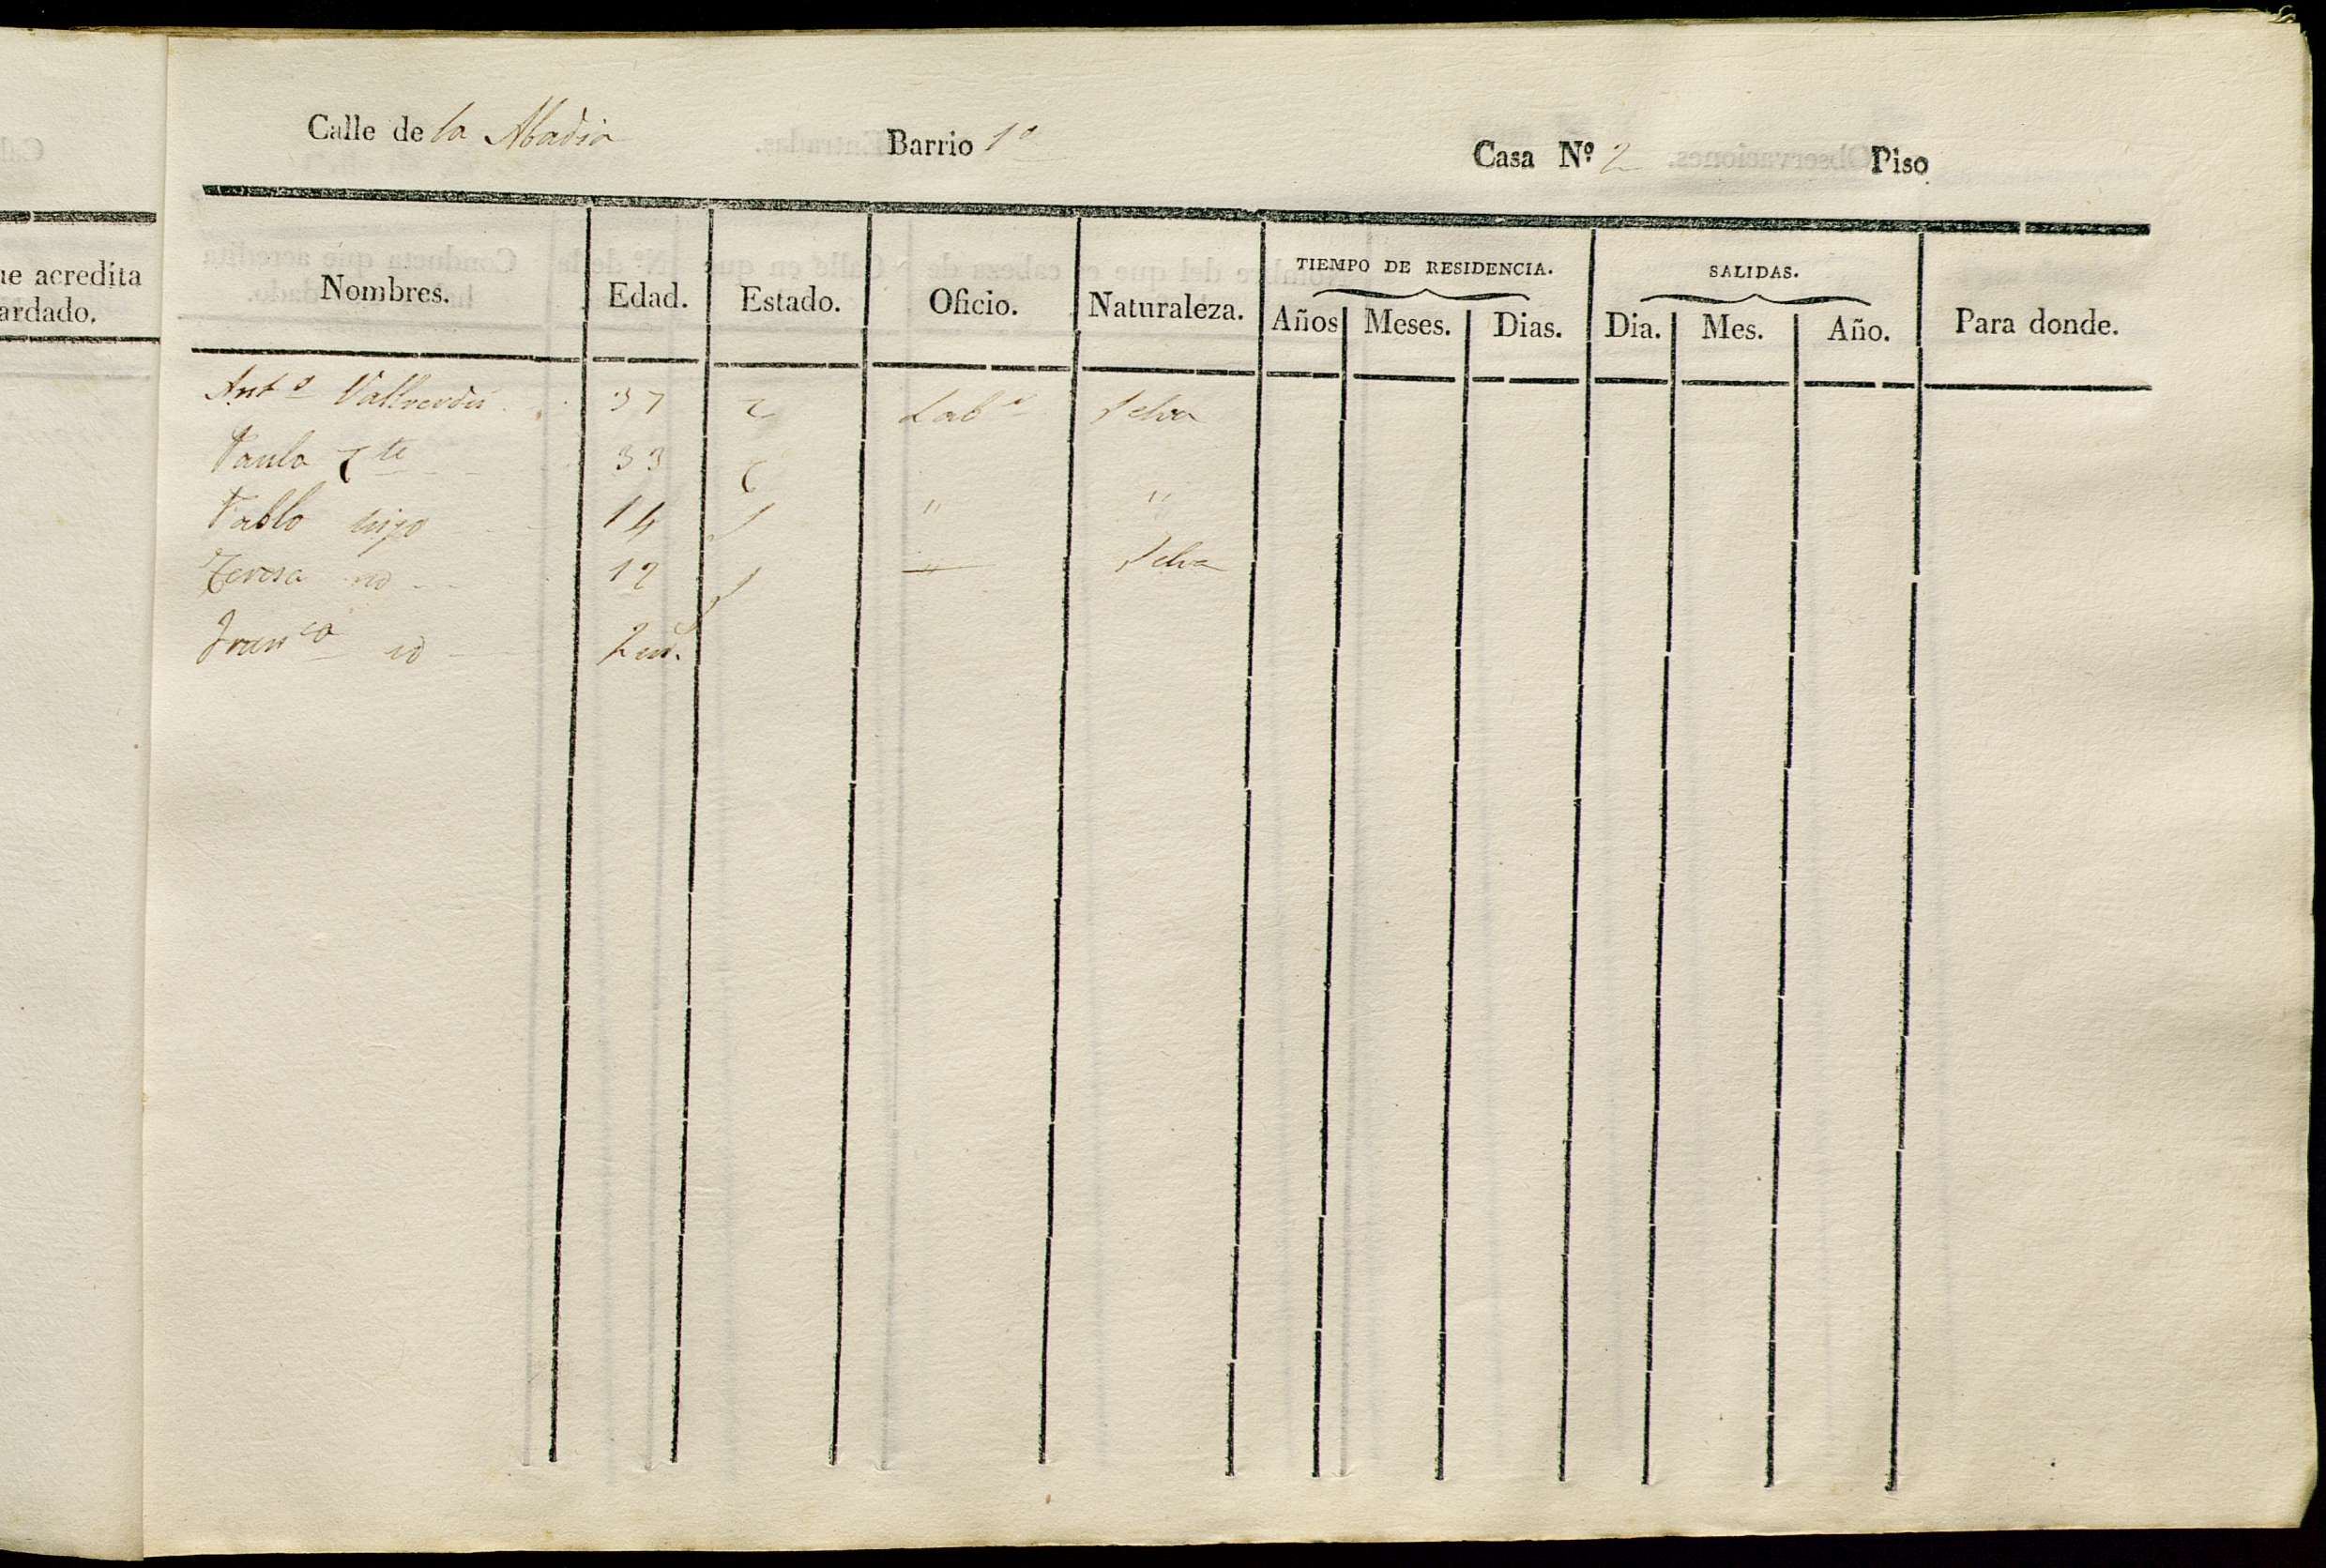 Calle de la Abadia Barrio 1º Casa Nº 2 Piso
ue acredita
ardado.
TIEMPO DE RESIDENCIA. SALIDAS.
Nombres. Edad. Estado. Oficio. Naturaleza. Años Meses. Dias. Dia. Mes. Año. Para donde.
Antº Vallverdú 37 Labº Selva
Paula 33
Pablo hijo 14 S " "
Teresa id 12 S " Selva
Franca id